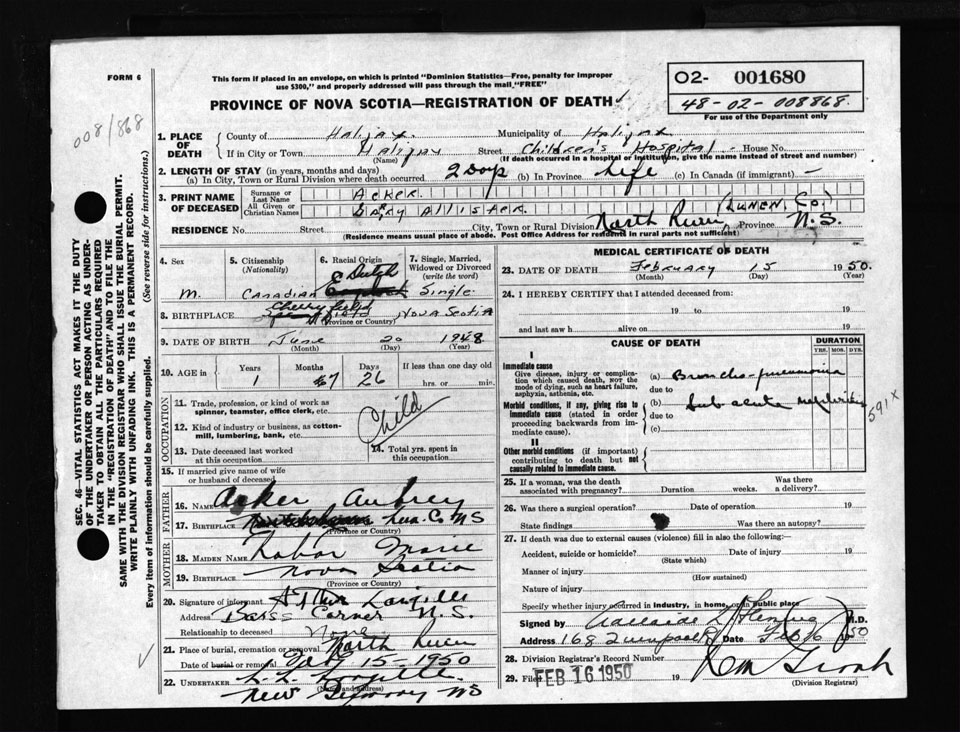 FORM 6
This form if placed in an envelope, on which is printed "Dominion Statistics—Free, penalty for improper
use $300," and properly addressed will pass through the mail, "FREE"
02- 001680
48-02-008868.
For use of the Department only
PROVINCE OF NOVA SCOTIA—REGISTRATION OF DEATH
008/868
1. PLACE OF DEATH
County of Halifax. Municipality of Halifax
If in City or Town Halifax (Name) Street Children's Hospital - House No.
(If death occurred in a hospital or institution, give the name instead of street and number)
2. LENGTH OF STAY (in years, months and days)
(a) In City, Town or Rural Division where death occurred 2 Days (b) In Province Life (c) In Canada (if immigrant) —
3. PRINT NAME OF DECEASED
Surname or Last Name Acker.
All Given or Christian Names Allistar.
RESIDENCE No. Street City, Town or Rural Division North River (Lunen. Co.) Province N.S.
(Residence means usual place of abode. Post Office Address for residents in rural parts not sufficient)
4. Sex M.
5. Citizenship (Nationality) Canadian
6. Racial Origin Dutch
7. Single, Married, Widowed or Divorced (write the word) Single
8. BIRTHPLACE Cherryfield Nova Scotia
(Province or Country)
9. DATE OF BIRTH June (Month) 20 (Day) 1948 (Year)
10. AGE in Years 1 Months 7 Days 26 If less than one day old hrs. or min.
OCCUPATION
11. Trade, profession, or kind of work as spinner, teamster, office clerk, etc.
12. Kind of industry or business, as cotton-mill, lumbering, bank, etc.
Child
13. Date deceased last worked at this occupation
14. Total yrs. spent in this occupation
15. If married give name of wife or husband of deceased
FATHER
16. NAME Acker Aubrey
17. BIRTHPLACE Lun. Co NS
(Province or Country)
MOTHER
18. MAIDEN NAME Marie
19. BIRTHPLACE Nova Scotia
(Province or Country)
20. Signature of informant
Address Barss Corner N.S.
Relationship to deceased None
21. Place of burial, cremation or removal North River
Date of burial or removal Feb 15-1950
22. UNDERTAKER
(Name and address)
New Germany NS
MEDICAL CERTIFICATE OF DEATH
23. DATE OF DEATH February (Month) 15 (Day) 1950. (Year)
24. I HEREBY CERTIFY that I attended deceased from:
19 to 19
and last saw h alive on 19
CAUSE OF DEATH
DURATION
YRS. MOS. DYS.
I
Immediate cause
Give disease, injury or complication which caused death, NOT the mode of dying, such as heart failure, asphyxia, asthenia, etc.
(a) Broncho-pneumonia
due to
Morbid conditions, if any, giving rise to immediate cause (stated in order proceeding backwards from immediate cause).
(b) Sub acute
due to
(c)
591x
II
Other morbid conditions (if important) contributing to death but not causally related to immediate cause.
25. If a woman, was the death associated with pregnancy? Duration weeks. Was there a delivery?
26. Was there a surgical operation? Date of operation 19
State findings Was there an autopsy?
27. If death was due to external causes (violence) fill in also the following:—
Accident, suicide or homicide? Date of injury 19
(State which)
Manner of injury
(How sustained)
Nature of injury
Specify whether injury occurred in industry, in home, or in public place
Signed by Adelaide M.D.
Address 168 Date Feb 16 1950
28. Division Registrar's Record Number
29. Filed FEB 16 1950 19
(Division Registrar)
SEC. 46—VITAL STATISTICS ACT MAKES IT THE DUTY
OF THE UNDERTAKER OR PERSON ACTING AS UNDERTAKER TO OBTAIN ALL THE PARTICULARS REQUIRED
IN THE "REGISTRATION OF DEATH" AND TO FILE THE
SAME WITH THE DIVISION REGISTRAR WHO SHALL ISSUE THE BURIAL PERMIT.
WRITE PLAINLY WITH UNFADING INK. THIS IS A PERMANENT RECORD.
Every item of information should be carefully supplied. (See reverse side for instructions.)